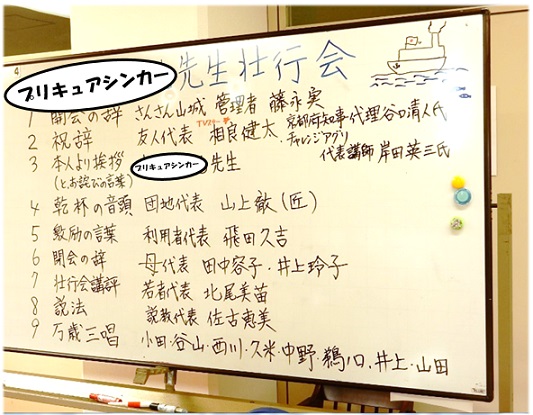 プリキュアシンカー先生壮行会
1 開会の辞 さんさん山城 管理者 藤永実
2 祝辞 友人代表 相良健太 京都府知事代理谷口清人氏
チャレンジアグリ
代表講師 岸田英三氏
3 本人より挨拶 プリキュアシンカー先生
(と、お詫びの言葉)
4 乾杯の音頭 団地代表 山上敏(匠)
5 激励の言葉 利用者代表 飛田久吉
6 閉会の辞 母代表 田中容子・井上玲子
7 壮行会講評 若者代表 北尾美苗
8 説法 説教代表 佐古恵美
9 万歳三唱 小田・谷山・西川・久米・中野・鵜口・井上・山田